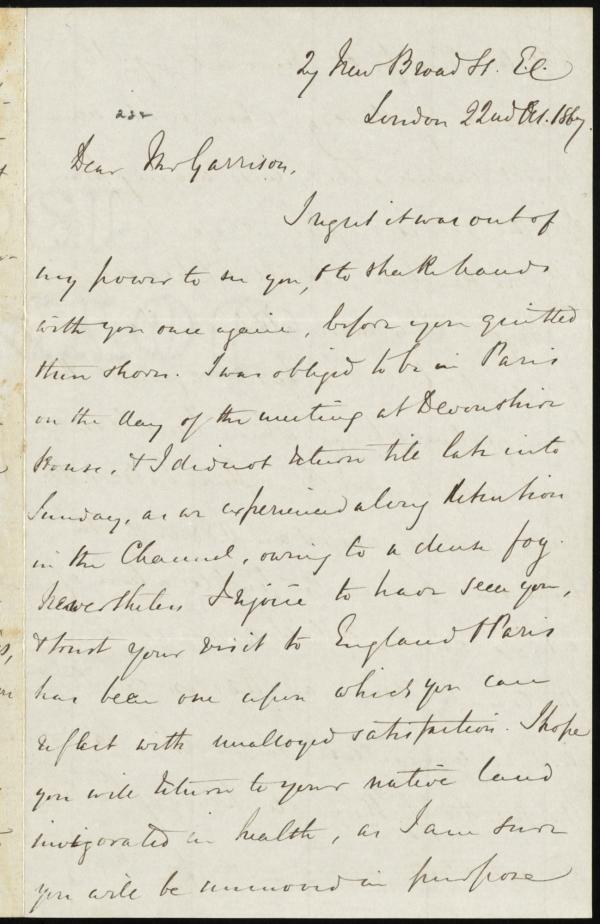 27 New Broad St. E.C.
London 22nd Oct. 1867.
Dear Mr Garrison,
I regret it was out of
my power to see you, & to shake hands
with you once again, before you quitted
these shores. I was obliged to be in Paris
on the day of the meeting at Devonshire
House, & I did not return till late into
Sunday, as we experienced a long detention
in the Channel, owing to a dense fog.
Nevertheless I rejoice to have seen you,
& trust your visit to England & Paris
has been one upon which you can
reflect with unalloyed satisfaction. I hope
you will return to your native land
invigorated in health, as I am sure
you will be unmoved in purpose